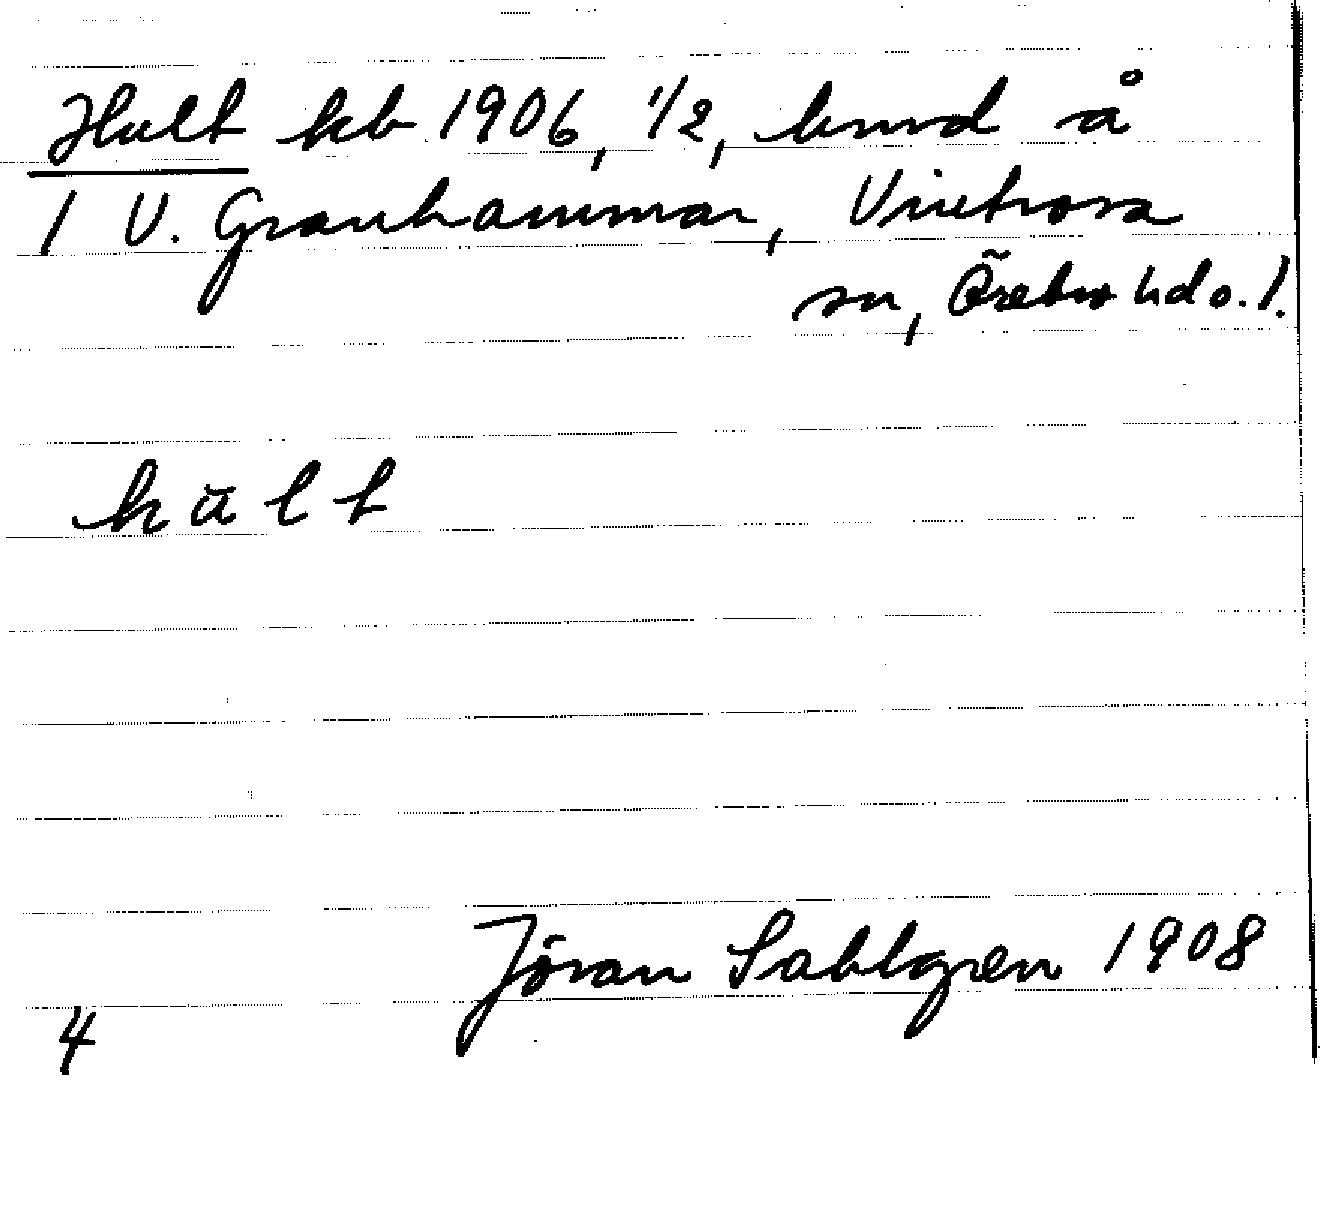 Hult kb 1906, 1/2, brnd å
1 V. Granhammar, Vintrosa
sn, Örebro hd o. l.
hult
Jöran Sahlgren 1908
4